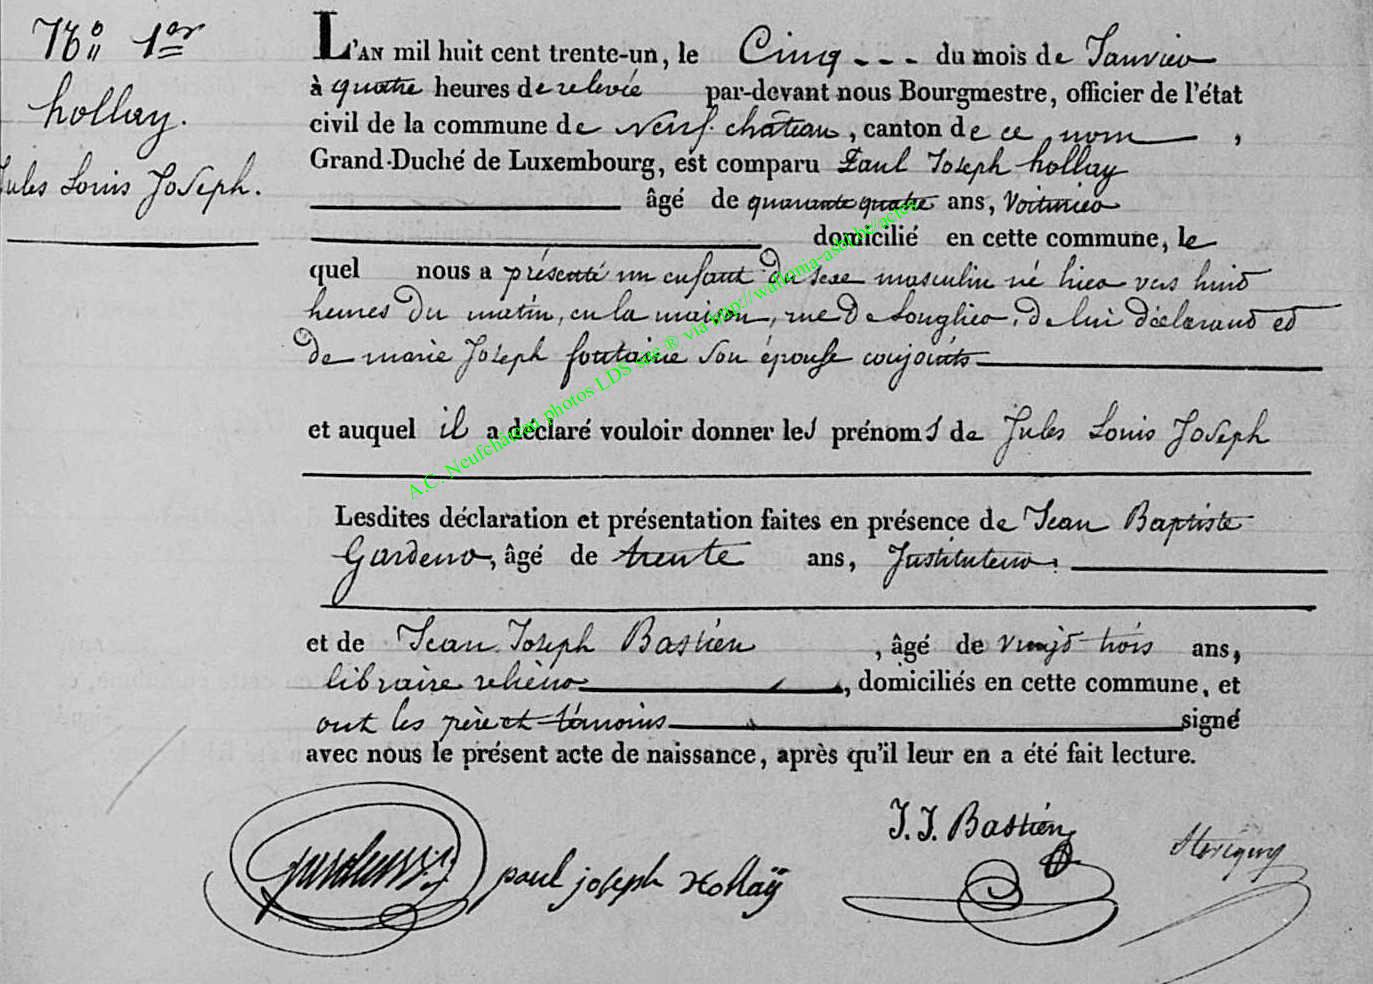 No 1er
hollay.
Jules Louis Joseph.
L'AN mil huit cent trente-un, le Cinq - - - du mois de Janvier
à quatre heures de relevée par-devant nous Bourgmestre, officier de l'état
civil de la commune de Neufchâteau, canton de ce nom ,
Grand-Duché de Luxembourg, est comparu Paul Joseph hollay
âgé de quarante quatre ans, Voiturier
domicilié en cette commune, le
quel nous a présenté un enfant du sexe masculin né hier vers huit
heures du matin, en la maison, rue de Longlier, de lui déclarant et
de marie Joseph fontaine son épouse conjoints
et auquel il a déclaré vouloir donner les prénoms de Jules Louis Joseph
Lesdites déclaration et présentation faites en présence de Jean Baptiste
âgé de trente ans, Instituteur.
et de Jean Joseph Bastien , âgé de vingt trois ans,
libraire relieur , domiciliés en cette commune, et
ont les père et témoins signé
avec nous le présent acte de naissance, après qu'il leur en a été fait lecture.
paul joseph Hollaÿ
J. J. Bastien
A.C. Neufchâteau photos LDS site ® via http://wallonia-asbl.be/actes